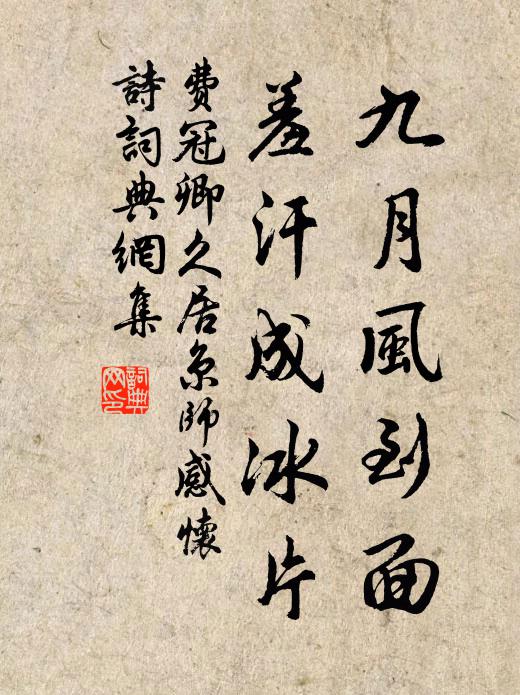 九月風到面
羞汗成冰片
費冠卿久居京師感懷
詩詞典網集
詞典
网印